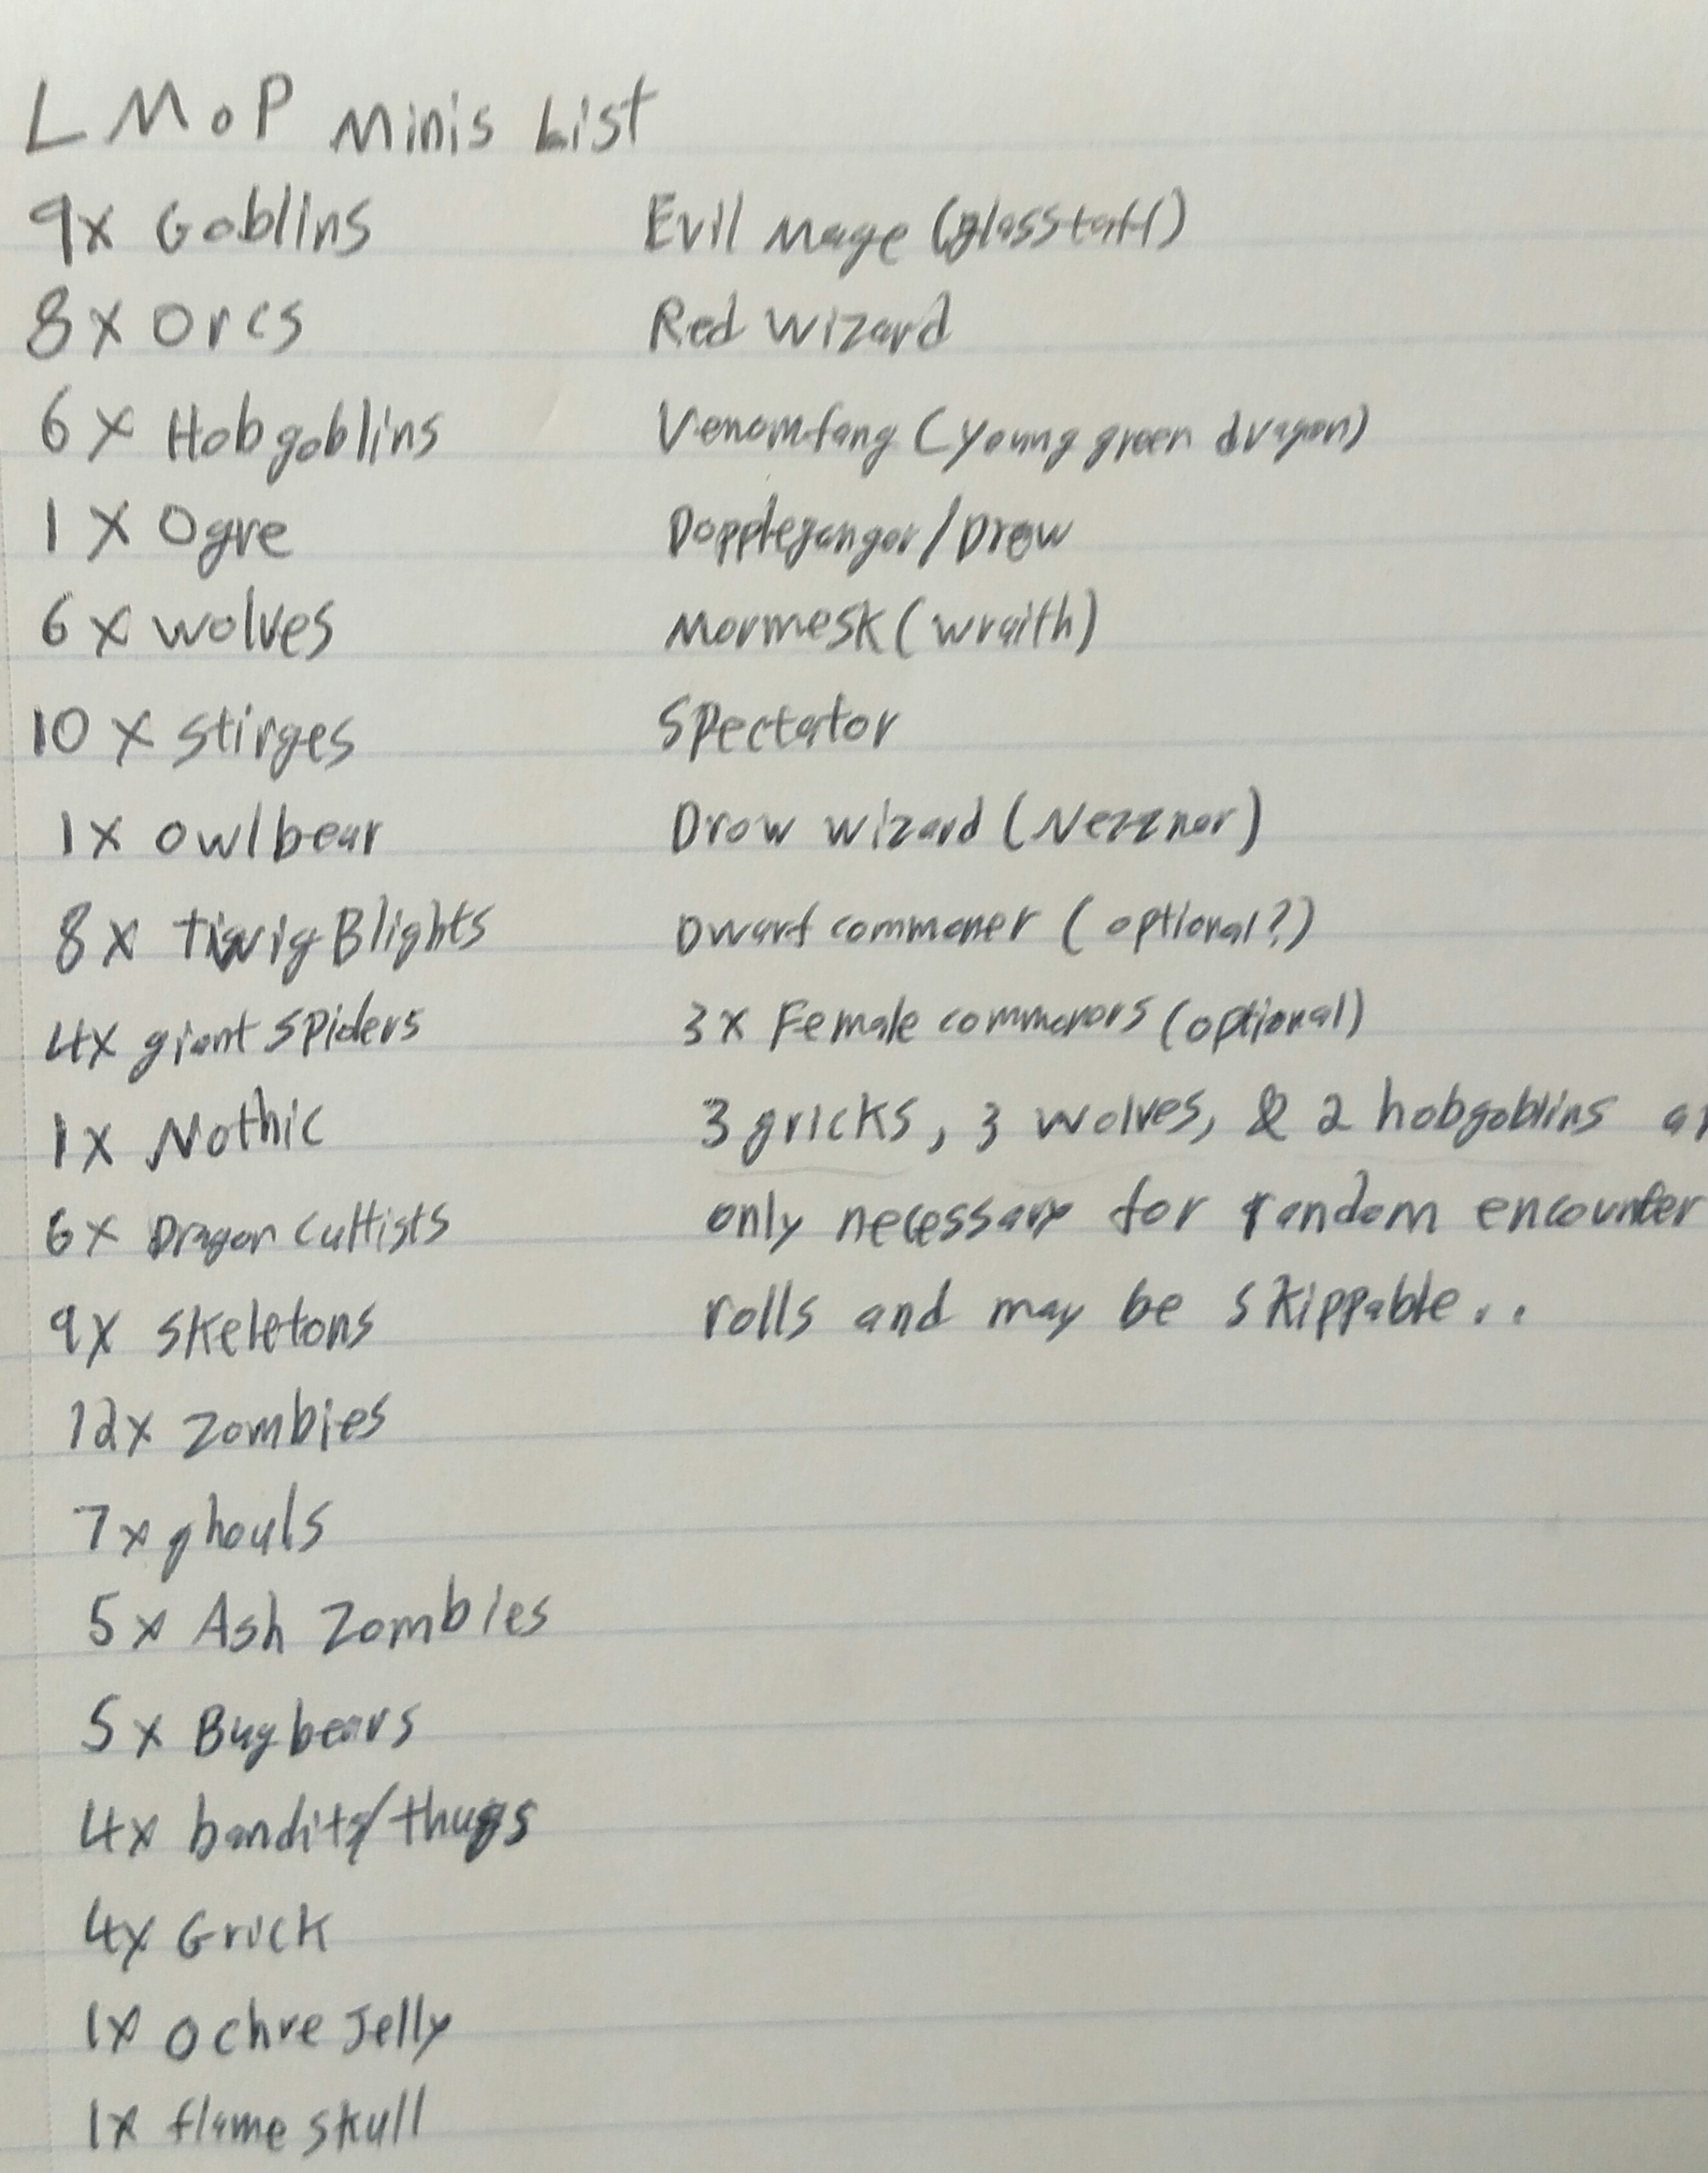 LMoP Minis List
9x Goblins
8x Orcs
6x Hobgoblins
1x Ogre
6x wolves
10x stirges
1x owlbear
8x Twig Blights
4x giant spiders
1x Nothic
6x Dragon Cultists
9x skeletons
12x zombies
7x ghouls
5x Ash Zombies
5x Bugbears
4x bandits/thugs
4x Grick
1x ochre Jelly
1x flame skull
Evil Mage (glasstaff)
Red Wizard
Venomfang (young green dragon)
Doppleganger/Drow
Mormesk (wraith)
Spectator
Drow wizard (Nezznar)
Dwarf commoner (optional?)
3x Female commoners (optional)
3 gricks, 3 wolves, & 2 hobgoblins
only necessary for random encounter
rolls and may be skippable..